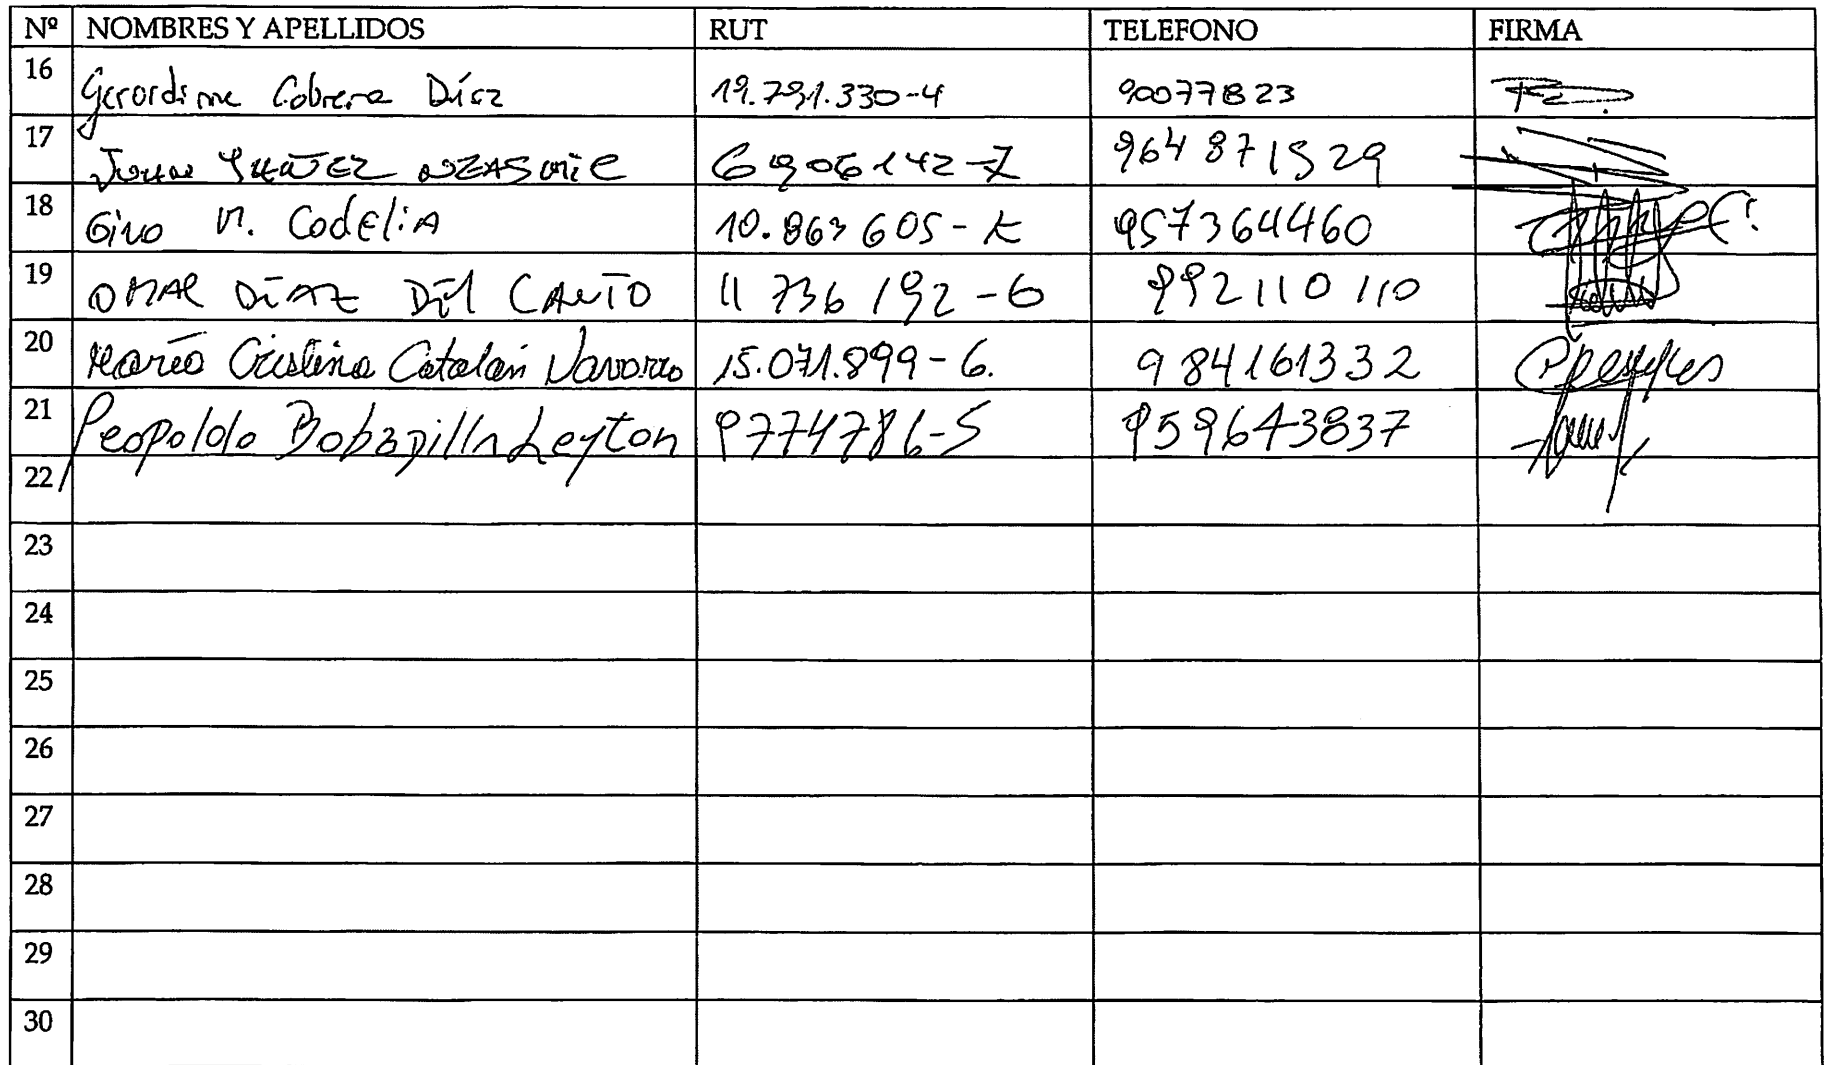 Nº NOMBRES Y APELLIDOS RUT TELEFONO FIRMA
16 Gerardine Cabrera Díaz 19.791.330-4 90077823
17 6906142-7 964871529
18 Gino M. Codelia 10.863605-K 957364460
19 OMAR DÍAZ DEL CANTO 11736192-6 992110110
20 María Cristina Catalán Navarro 15.071.899-6. 984161332
21 Leopoldo Bobadilla Leyton 9774786-5 959643837
22
23
24
25
26
27
28
29
30